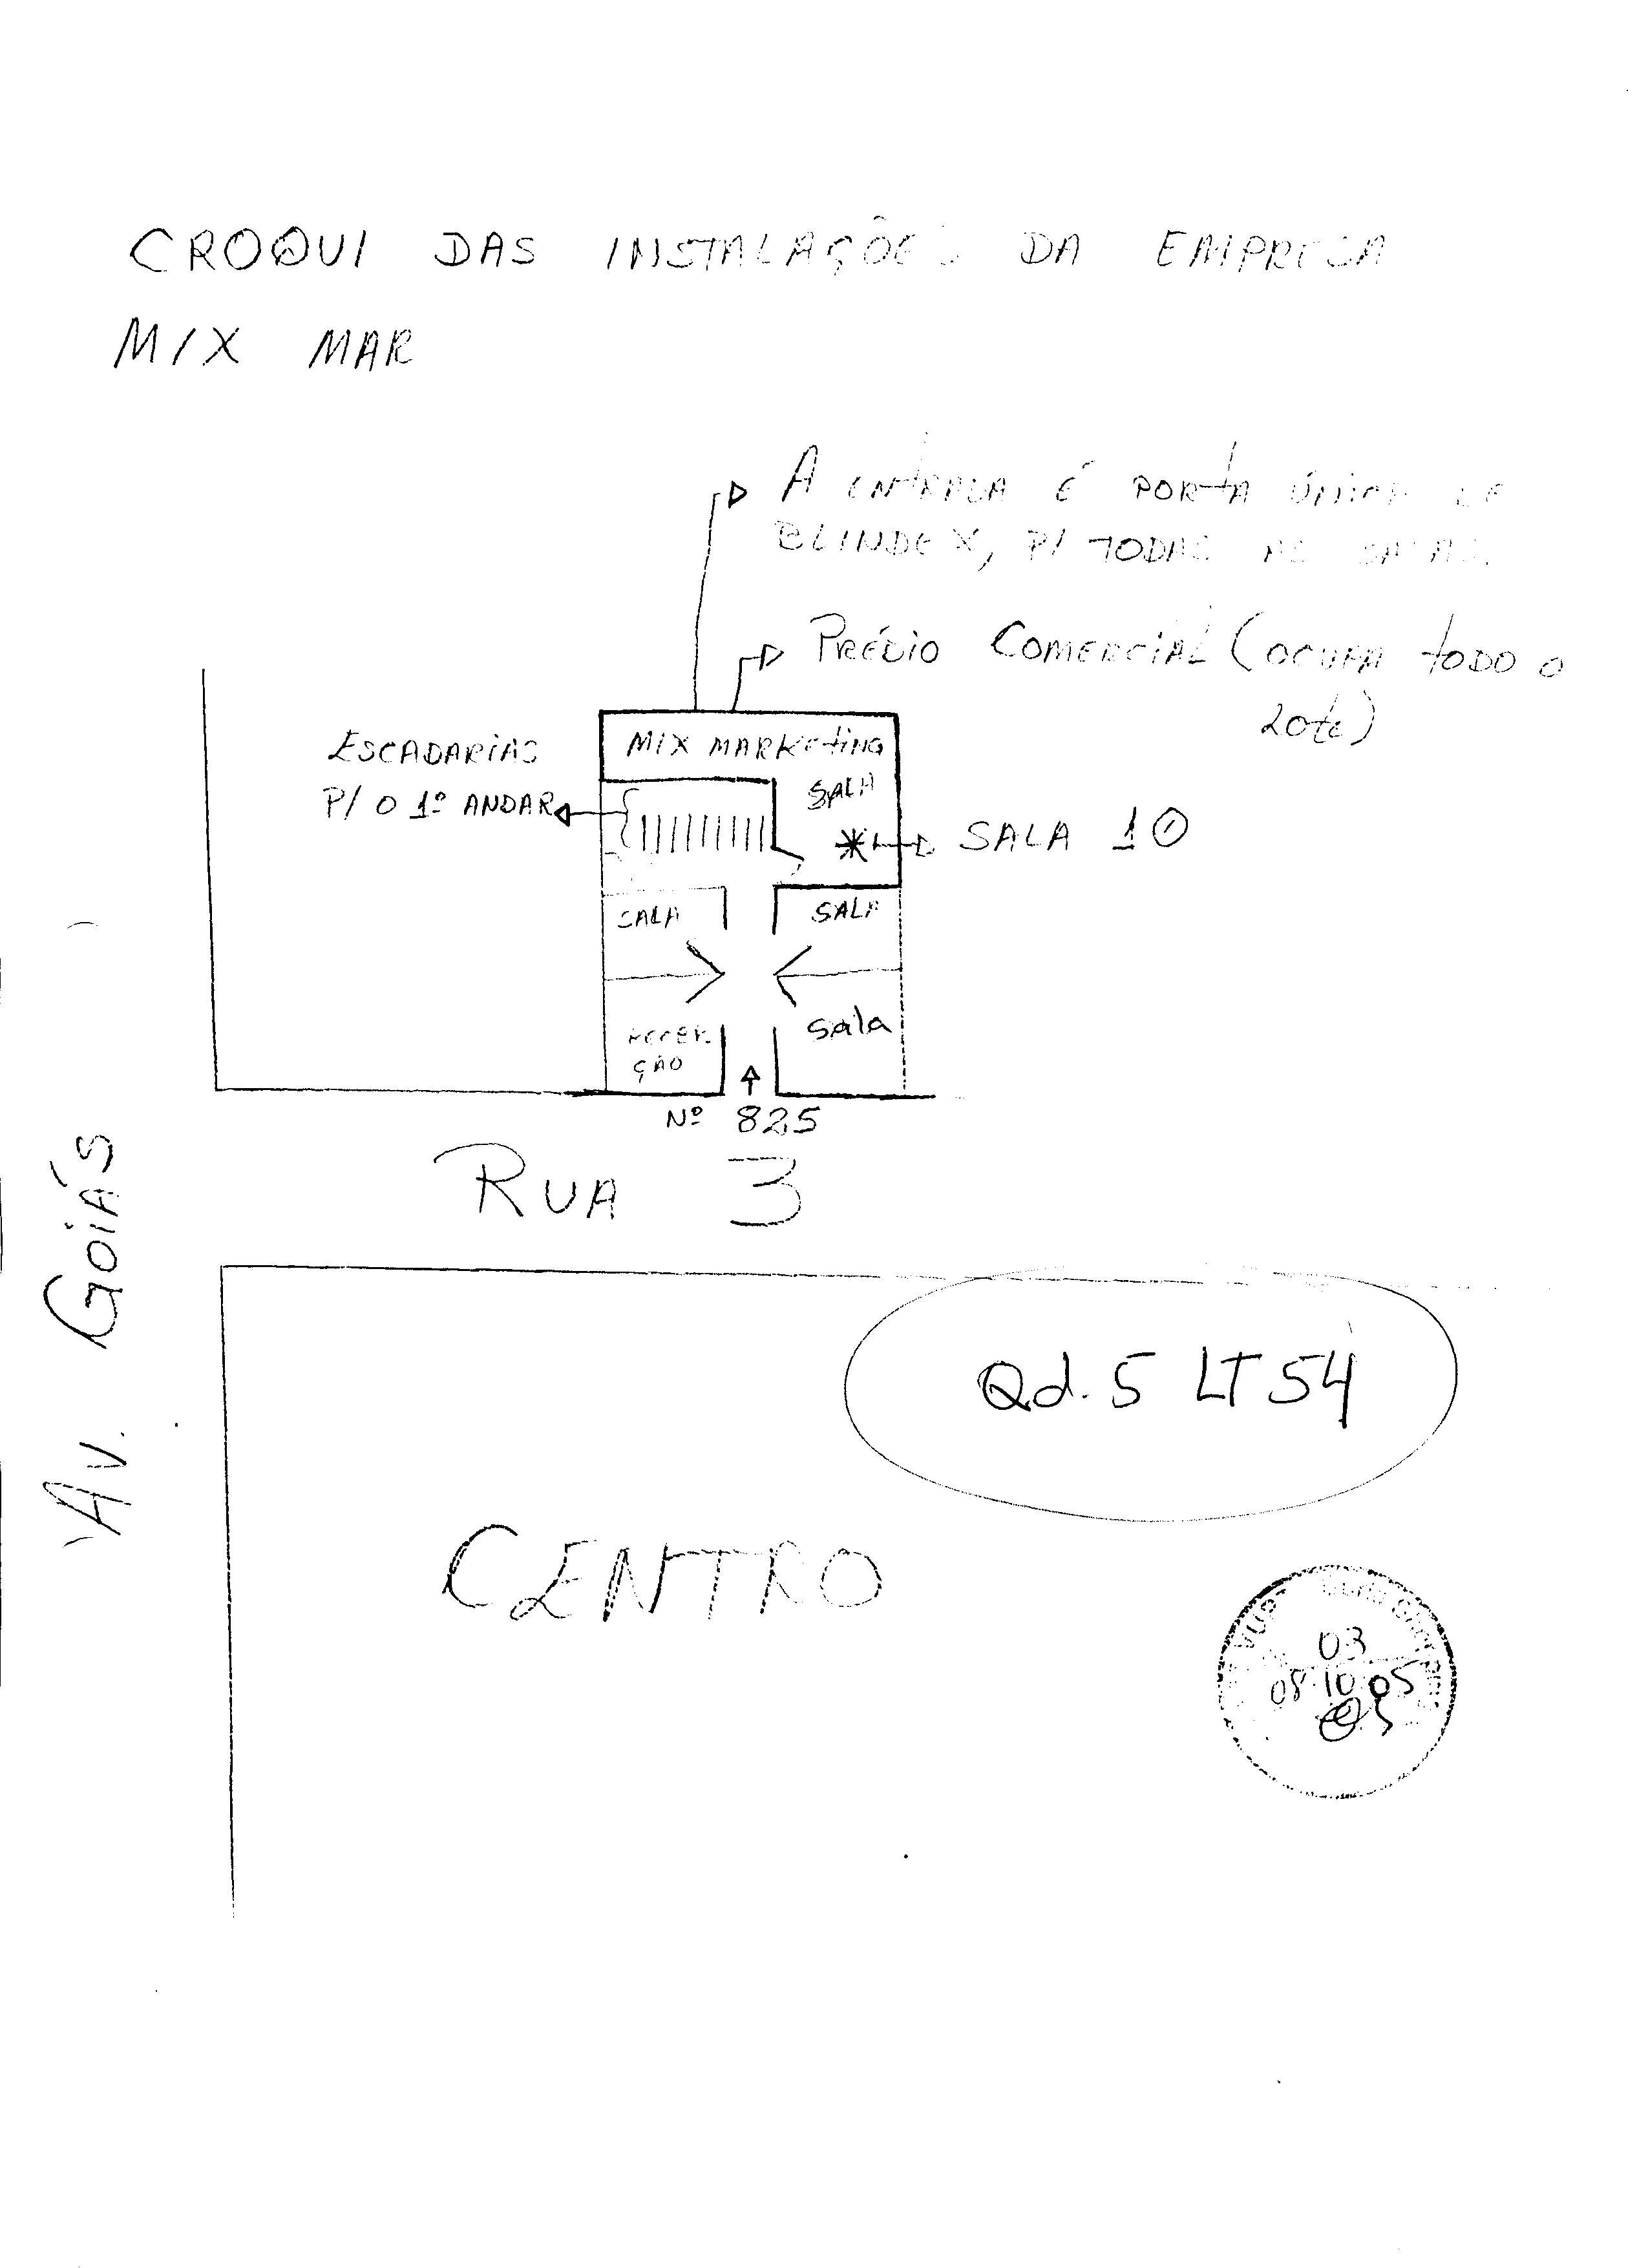 CROQUI DAS INSTALAÇÕES DA EMPRESA
MIX MAR
A ENTRADA É PORTA ÚNICA DE
BLINDEX, P/ TODAS AS SALAS.
PRÉDIO COMERCIAL (OCUPA TODO O
LOTE)
ESCADARIAS
P/ O 1º ANDAR
MIX MARKETING
SALA
SALA 10
SALA
SALA
RECEP.
ÇÃO
Sala
Nº 825
RUA 3
AV. GOIÁS
Qd. 5 LT 54
CENTRO
03
08 10 05